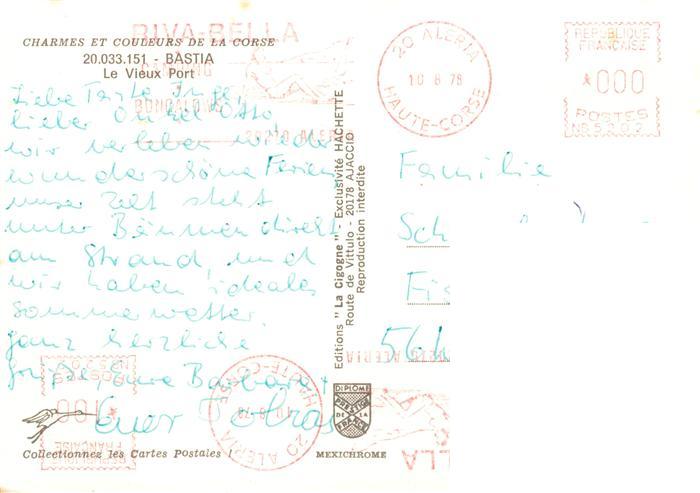 RIVA-BELLA
CHARMES ET COULEURS DE LA CORSE
20.033.151 - BASTIA
Le Vieux Port
CAMPING
BUNGALOWS
Liebe Tante Inge,
lieber Onkel Otto,
wir verleben wieder
wunderschöne Ferien,
unser Zelt steht
unter Bäumen direkt
am Strand, und
wir haben ideales
Sommerwetter.
ganz herzliche
Grüße Eure Barbara +
Euer Tobias
Collectionnez les Cartes Postales !
MEXICHROME
Editions "La Cigogne" - Exclusivité HACHETTE
Route de Vittulo - 20178 AJACCIO
Reproduction interdite
DIPLOME
PRESTIGE
DE LA
FRANCE
20 ALERIA
10 8 78
HAUTE-CORSE
REPUBLIQUE
FRANCAISE
000
POSTES
Familie
Sch
Fis
564
20 ALERIA
HAUTE-CORSE
REPUBLIQUE
FRANCAISE
POSTES
20270 ALERIA
LLA